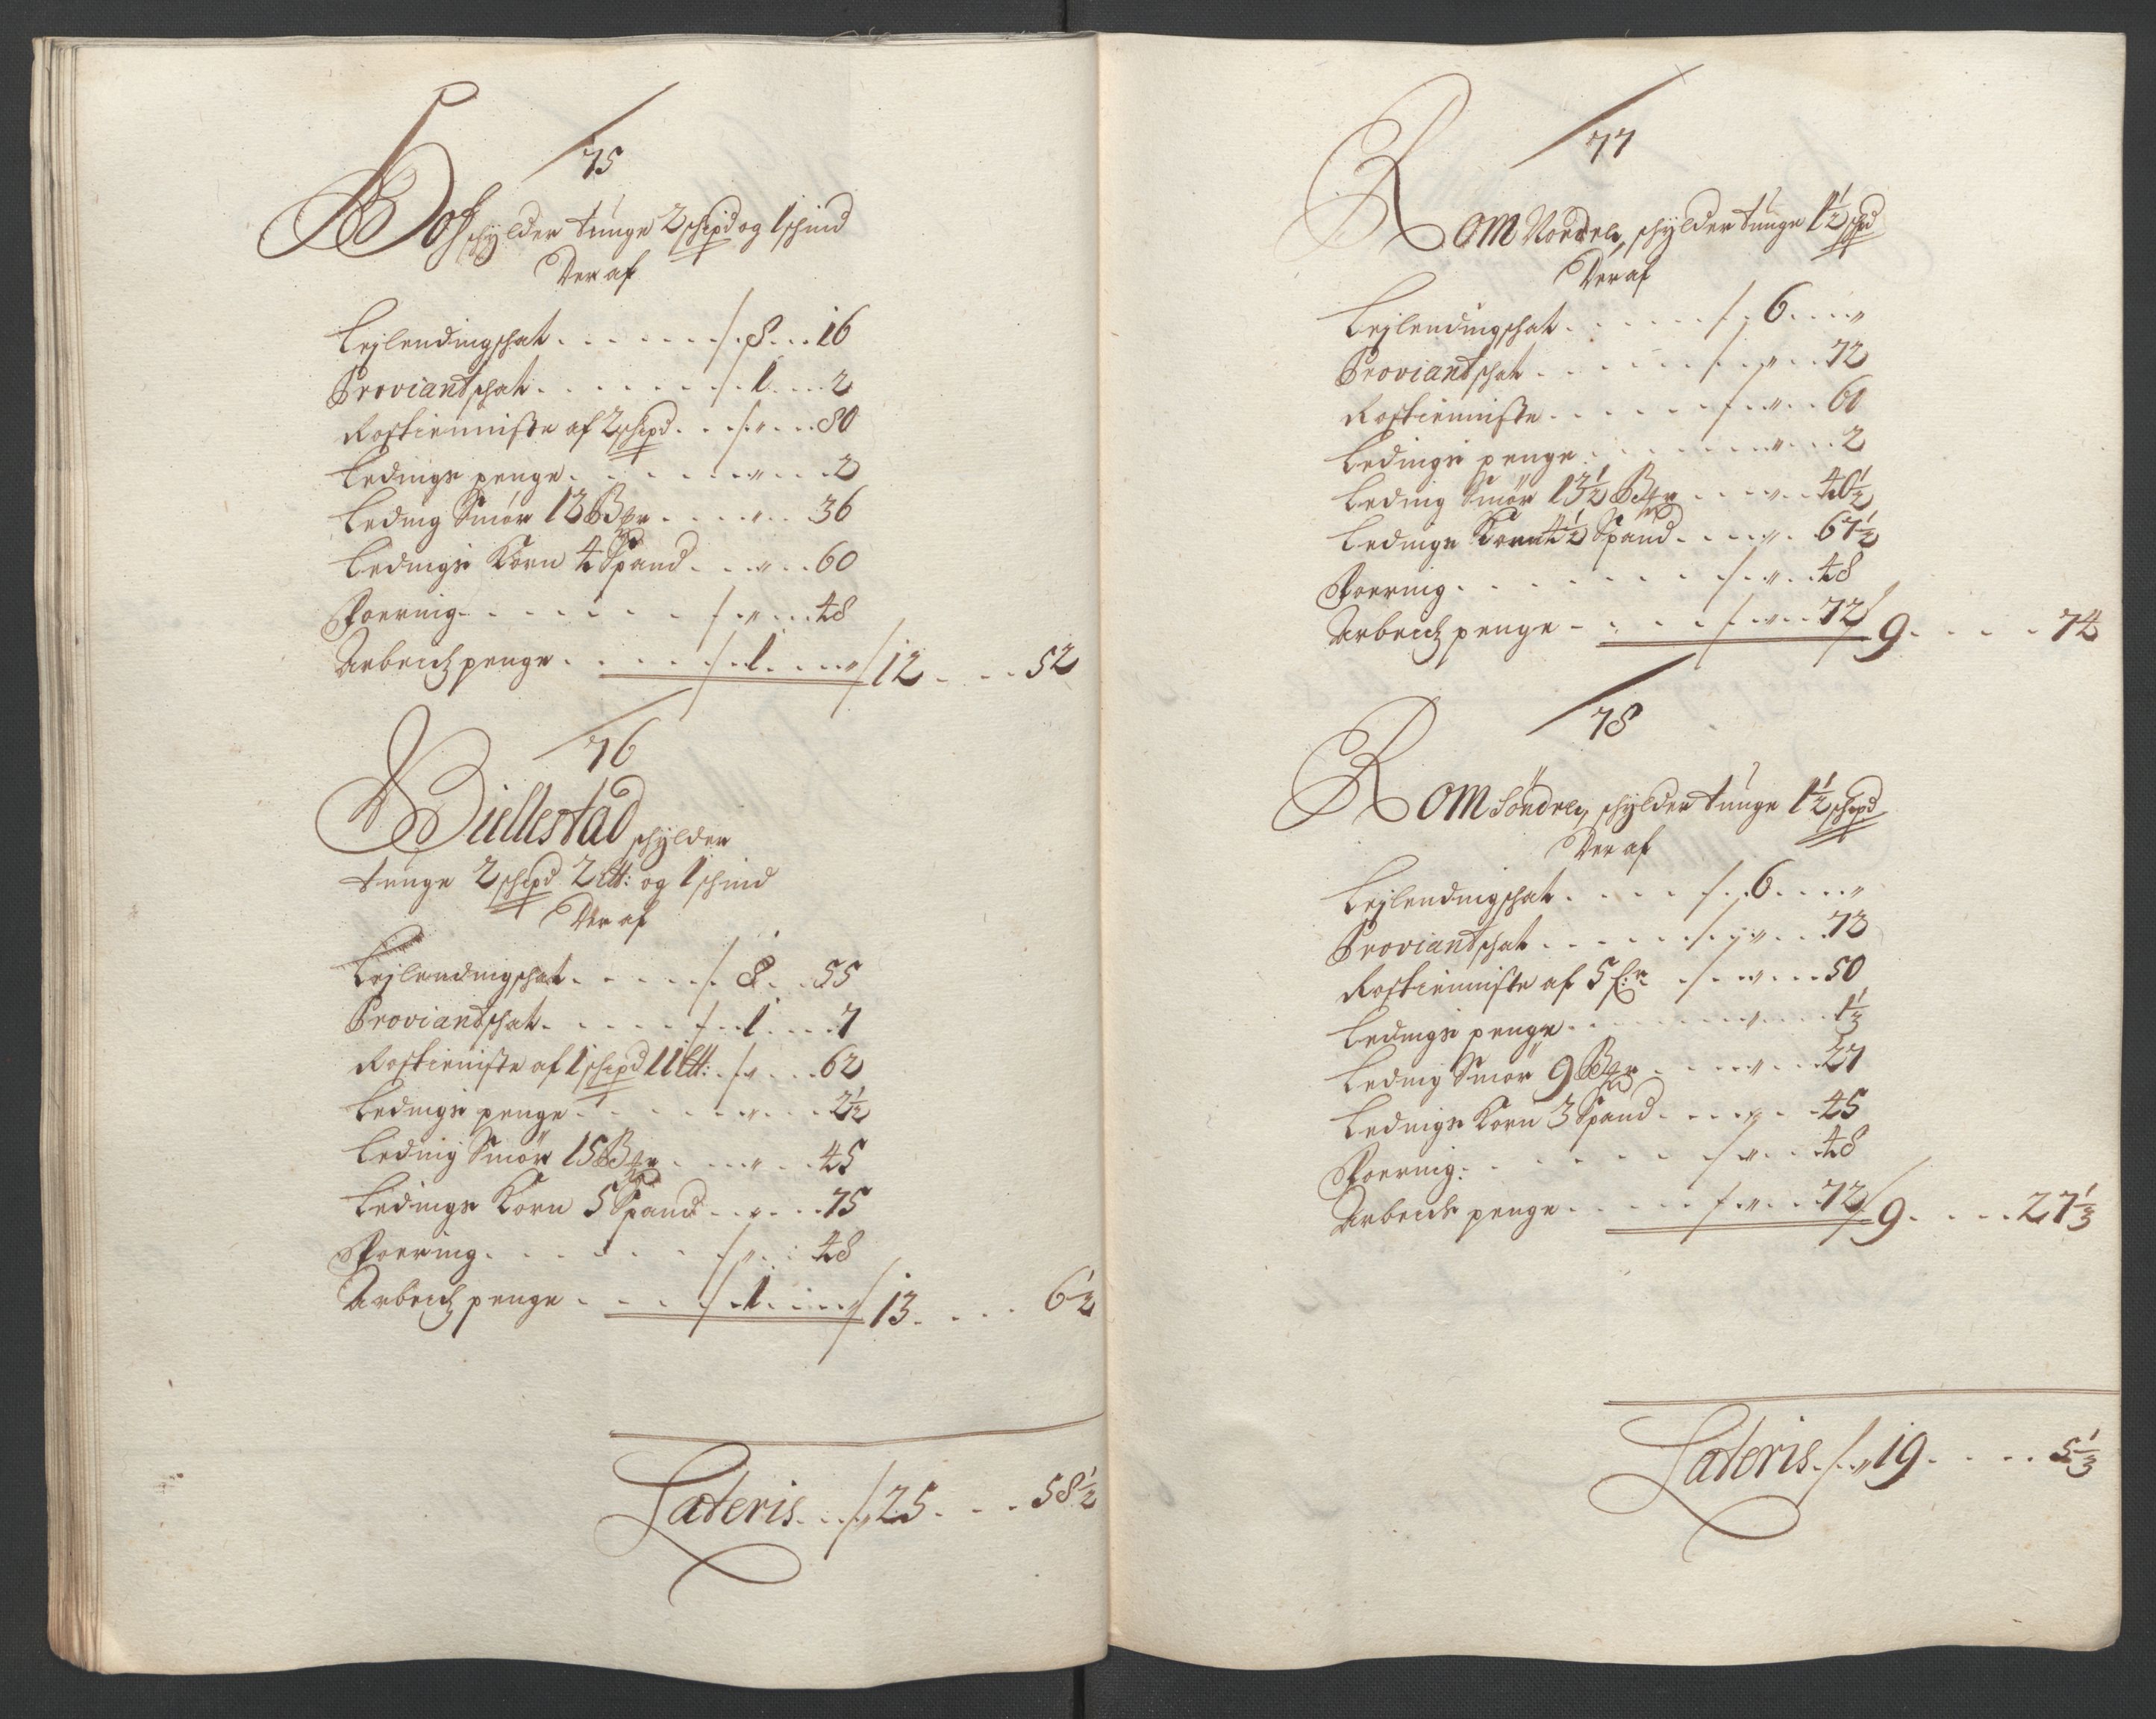 75
Bos schylder tunge 2 schpd og 1 schind
Der af
Leylendingschat . . . . . . . / . 8 . . . 16
Proviantschat . . . . . . . / . 1 . . . . 2
Rostienniste af 2 schpd . . . / . " . . . 80
Ledings penge . . . . . . . " . . . . 2
Leding Smör 12 . . . . . " . . . 36
Ledings Korn 4 Spand . . . " . . . 60
Foering . . . . . . . / . " . . . 48
Arbeids penge . . . . . / . 1 . . . . " / 12 . . . . 52
76
Biellestad schylder
tunge 2 schpd 2 Lt: og 1 schind
Der af
Leylendingschat . . . . . / . 8 . . . 55
Proviantschat . . . . . . / . 1 . . . . 7
Rostieniste af 1 schpd 11 Lt: . / . " . . . 62
Ledings penge . . . . . . " . . . . 2½
Leding Smör 15 . . . . . " . . . 45
Ledings Korn 5 Spand . . . " . . . 75
Foering . . . . . . . / " . . . 48
Arbeids penge . . . . / . 1 . . . . " / 13 . . . . 6½
Lateris . . . / " 25 . . . . 58½
77
Rom Nordre, schylder tunge 1½ schpd
Der af
Leylendingschat . . . . . . / . 6 . . . . "
Proviantschat . . . . . . / . " . . . 72
Rostienniste . . . . . . / . " . . . 60
Ledings penge . . . . . . . " . . . . 2
Leding Smör 13½ . . . . " . . . 40½
Ledings Korn 4½ Spand . . . . " . . 67½
Foering . . . . . . . / . " . . . 48
Arbeids penge . . . . . / . " . . . 72 / 9 . . . . 74
78
Rom Söndre, schylder tunge 1½ schpd
Der af
Leylendingschat . . . . . / . 6 . . . . "
Proviantschat . . . . . . / . " . . . 72
Rostienniste af 5 . . / . " . . . 50
Ledings penge . . . . . . . " . . . . 1⅓
Leding Smör 9 . . . . . " . . . 27
Ledings Korn 3 Spand . . . . " . . . 45
Foering . . . . . . . / " . . . 48
Arbeids penge . . . . . / . " . . . 72 / 9 . . . . 27⅓
Lateris . / . " 19 . . . . . 5⅓